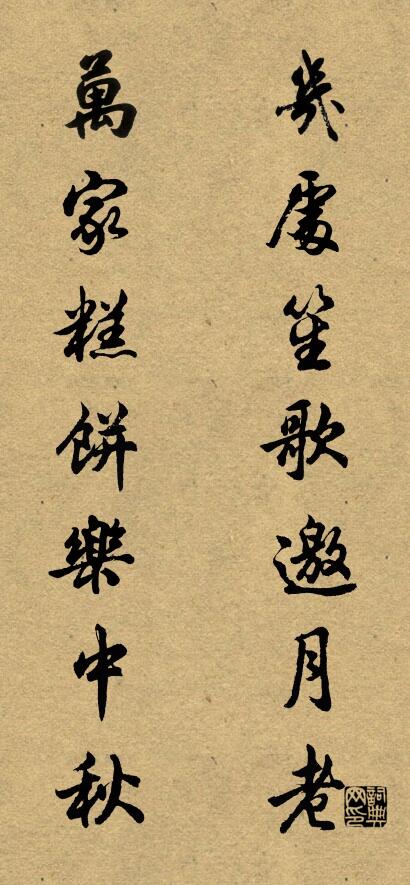 幾處笙歌邀月老
萬家糕餅樂中秋
詞典網印